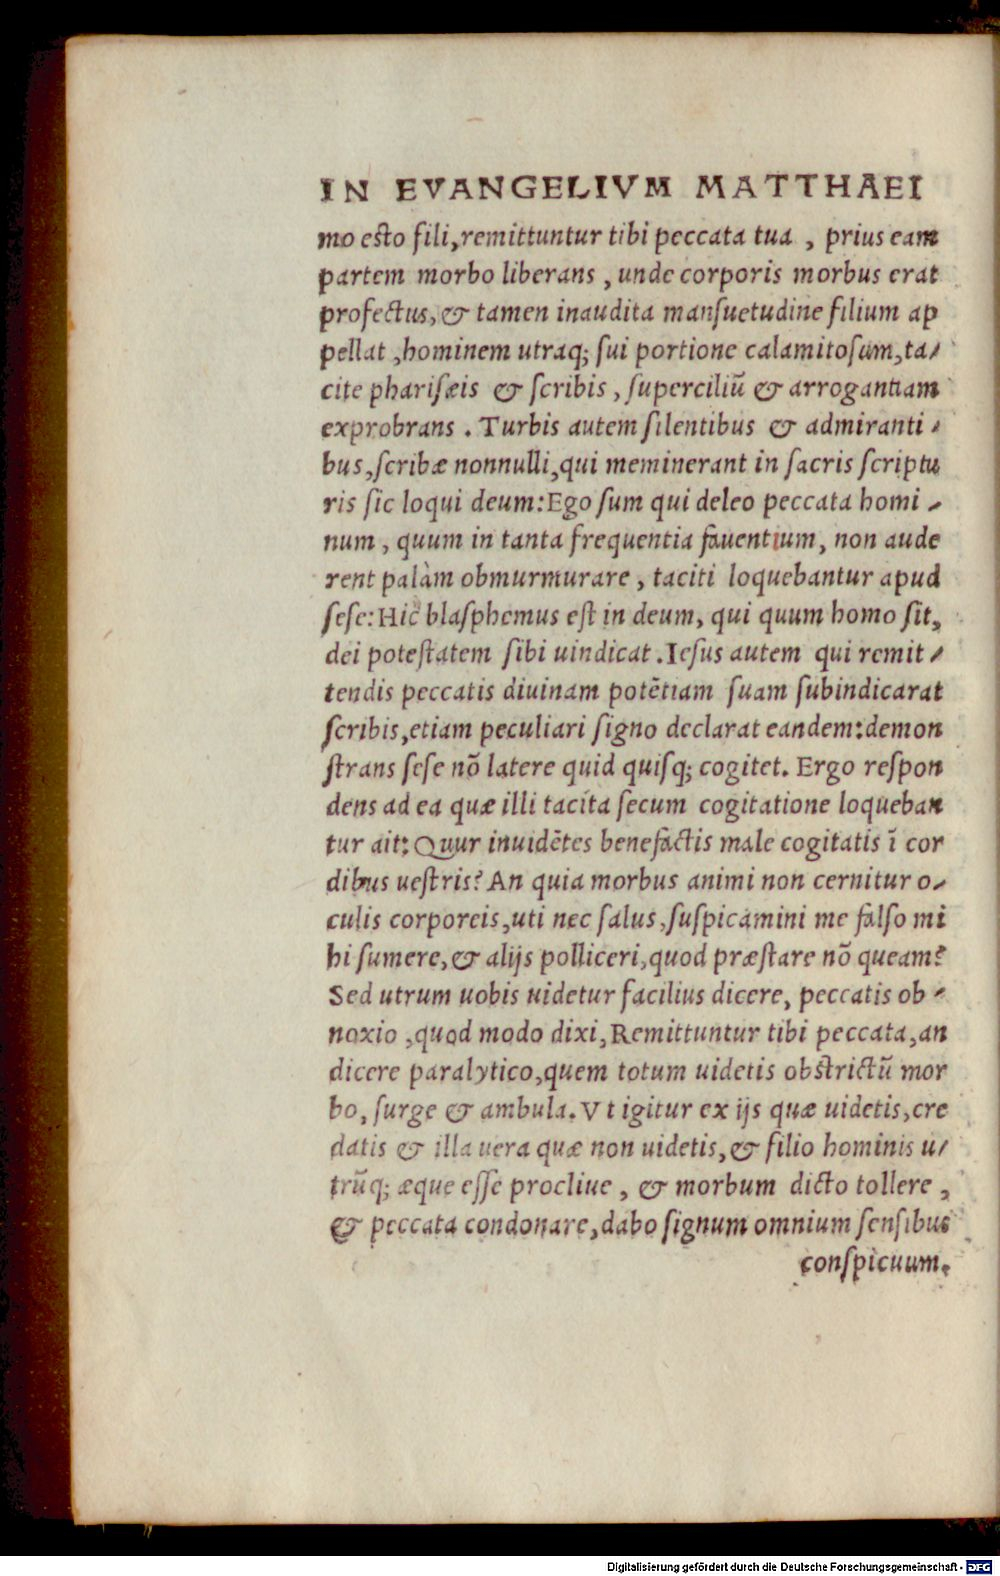 IN EVANGELIVM MATTHAEI
mo esto fili, remittuntur tibi peccata tua , prius eam
partem morbo liberans , unde corporis morbus erat
profectus, & tamen inaudita mansuetudine filium ap
pellat , hominem utraq; sui portione calamitosum, ta/
cite pharisæis & scribis , superciliũ & arrogantiam
exprobrans . Turbis autem silentibus & admiranti/
bus, scribæ nonnulli, qui meminerant in sacris scriptu
ris sic loqui deum: Ego sum qui deleo peccata homi/
num , quum in tanta frequentia fauentium, non aude
rent palàm obmurmurare , taciti loquebantur apud
sese: Hic blasphemus est in deum, qui quum homo sit,
dei potestatem sibi uindicat . Iesus autem qui remit/
tendis peccatis diuinam potẽtiam suam subindicarat
scribis, etiam peculiari signo declarat eandem: demon
strans sese nõ latere quid quisq; cogitet. Ergo respon
dens ad ea quæ illi tacita secum cogitatione loqueban
tur ait: Quur inuidẽtes benefactis male cogitatis ĩ cor
dibus uestris? An quia morbus animi non cernitur o/
culis corporeis, uti nec salus, suspicamini me falso mi
hi sumere, & alijs polliceri, quod præstare nõ queam?
Sed utrum uobis uidetur facilius dicere, peccatis ob/
noxio , quod modo dixi, Remittuntur tibi peccata, an
dicere paralytico, quem totum uidetis obstrictũ mor
bo, surge & ambula. Vt igitur ex ijs quæ uidetis, cre
datis & illa uera quæ non uidetis, & filio hominis u/
trũq; æque esse procliue , & morbum dicto tollere ,
& peccata condonare, dabo signum omnium sensibus
conspicuum.
Digitalisierung gefördert durch die Deutsche Forschungsgemeinschaft - DFG